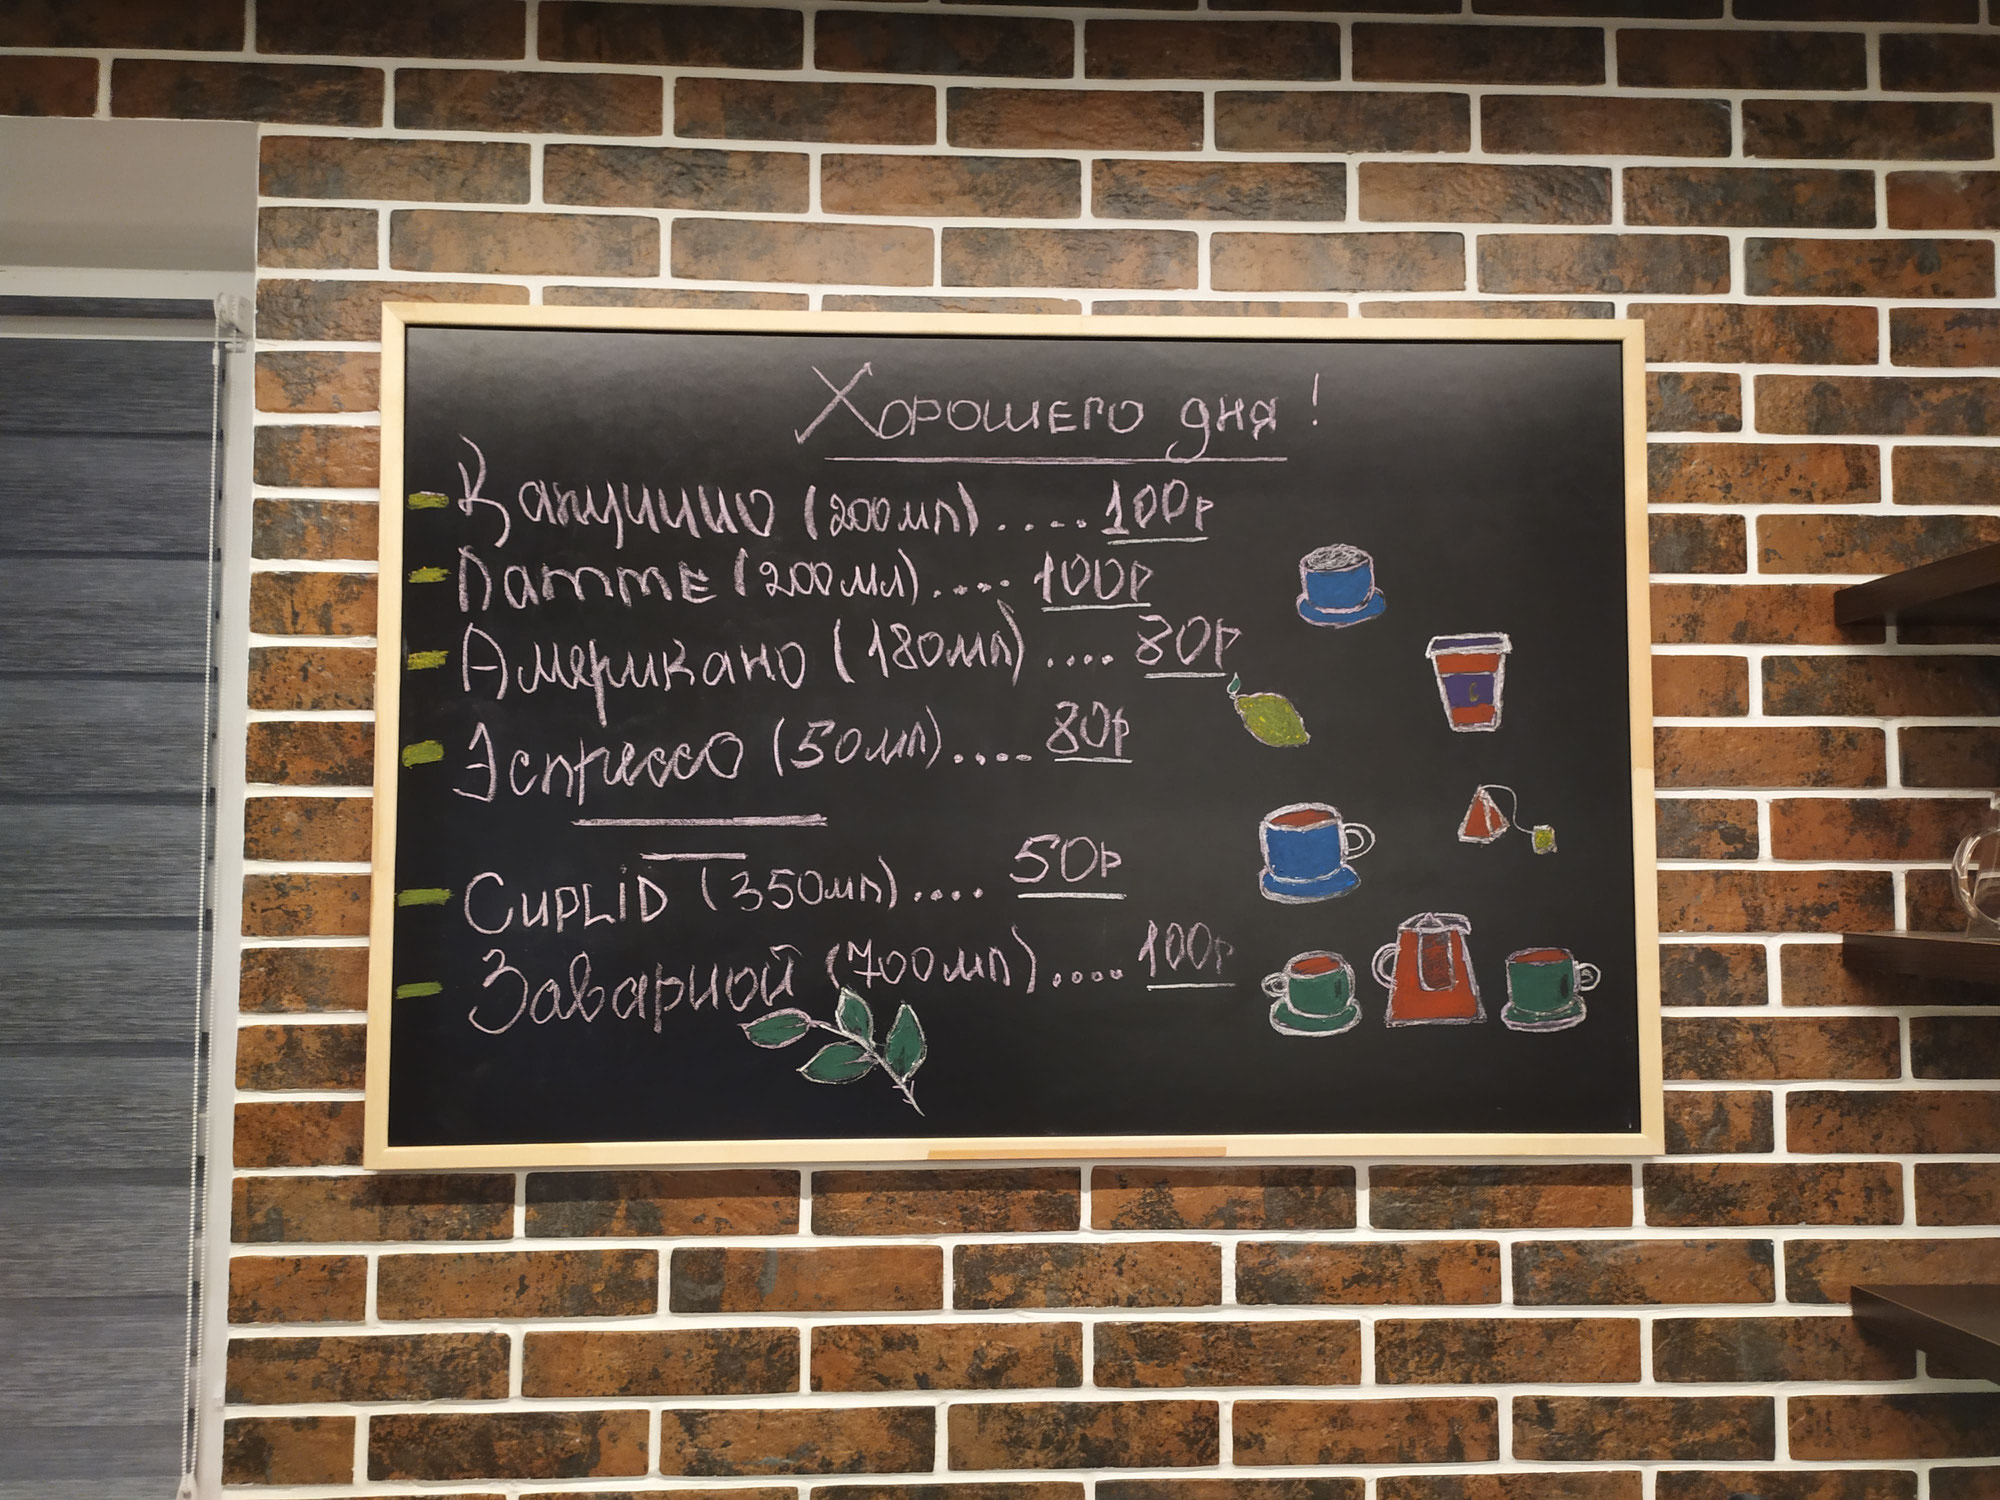 Хорошего дня!
Капучино (200мл).....100р
Латте (200мл).... 100р
Американо (180мл).... 80р
Эспрессо (50мл).... 80р
CupLiD (350мл).... 50р
Заварной (700мл).... 100р
C